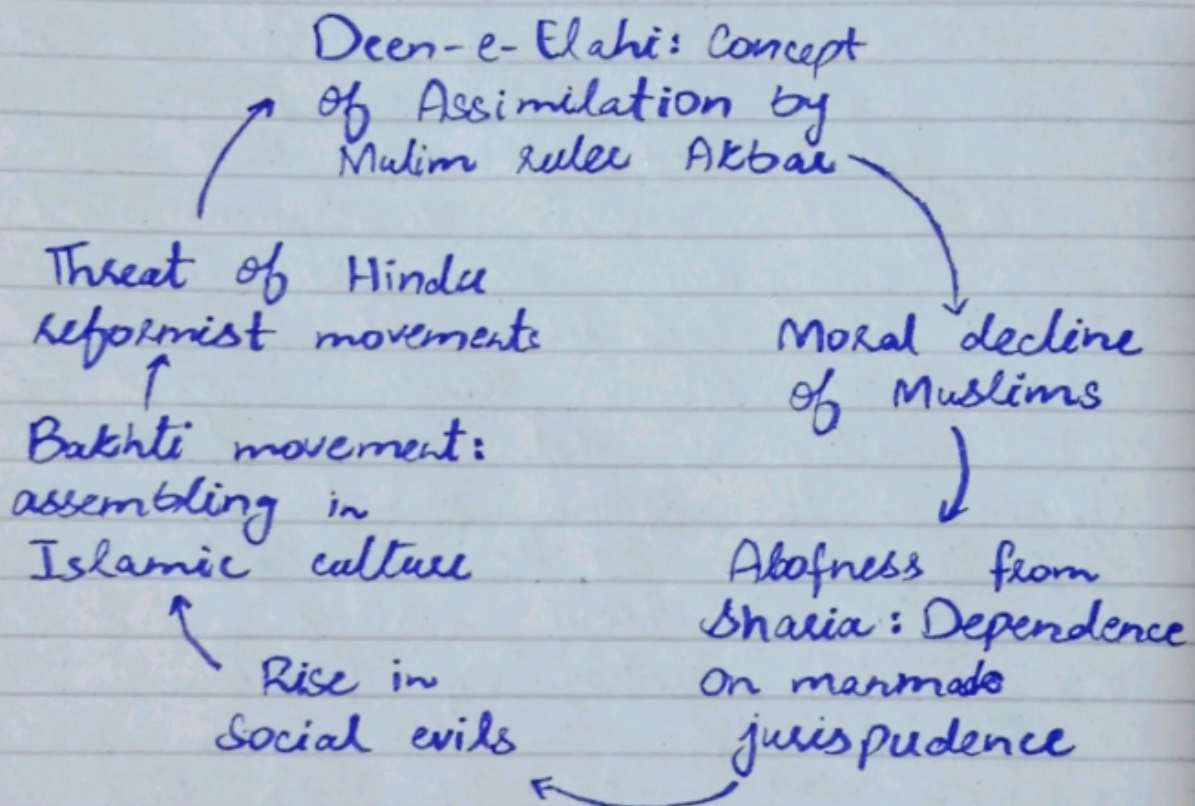 Deen-e-Elahi: Concept
of Assimilation by
Mulim ruler Akbar
Moral decline
of Muslims
Alofness from
Sharia: Dependence
on manmade
jurispudence
Rise in
Social evils
Bakhti movement:
assembling in
Islamic culture
Threat of Hindu
reformist movements